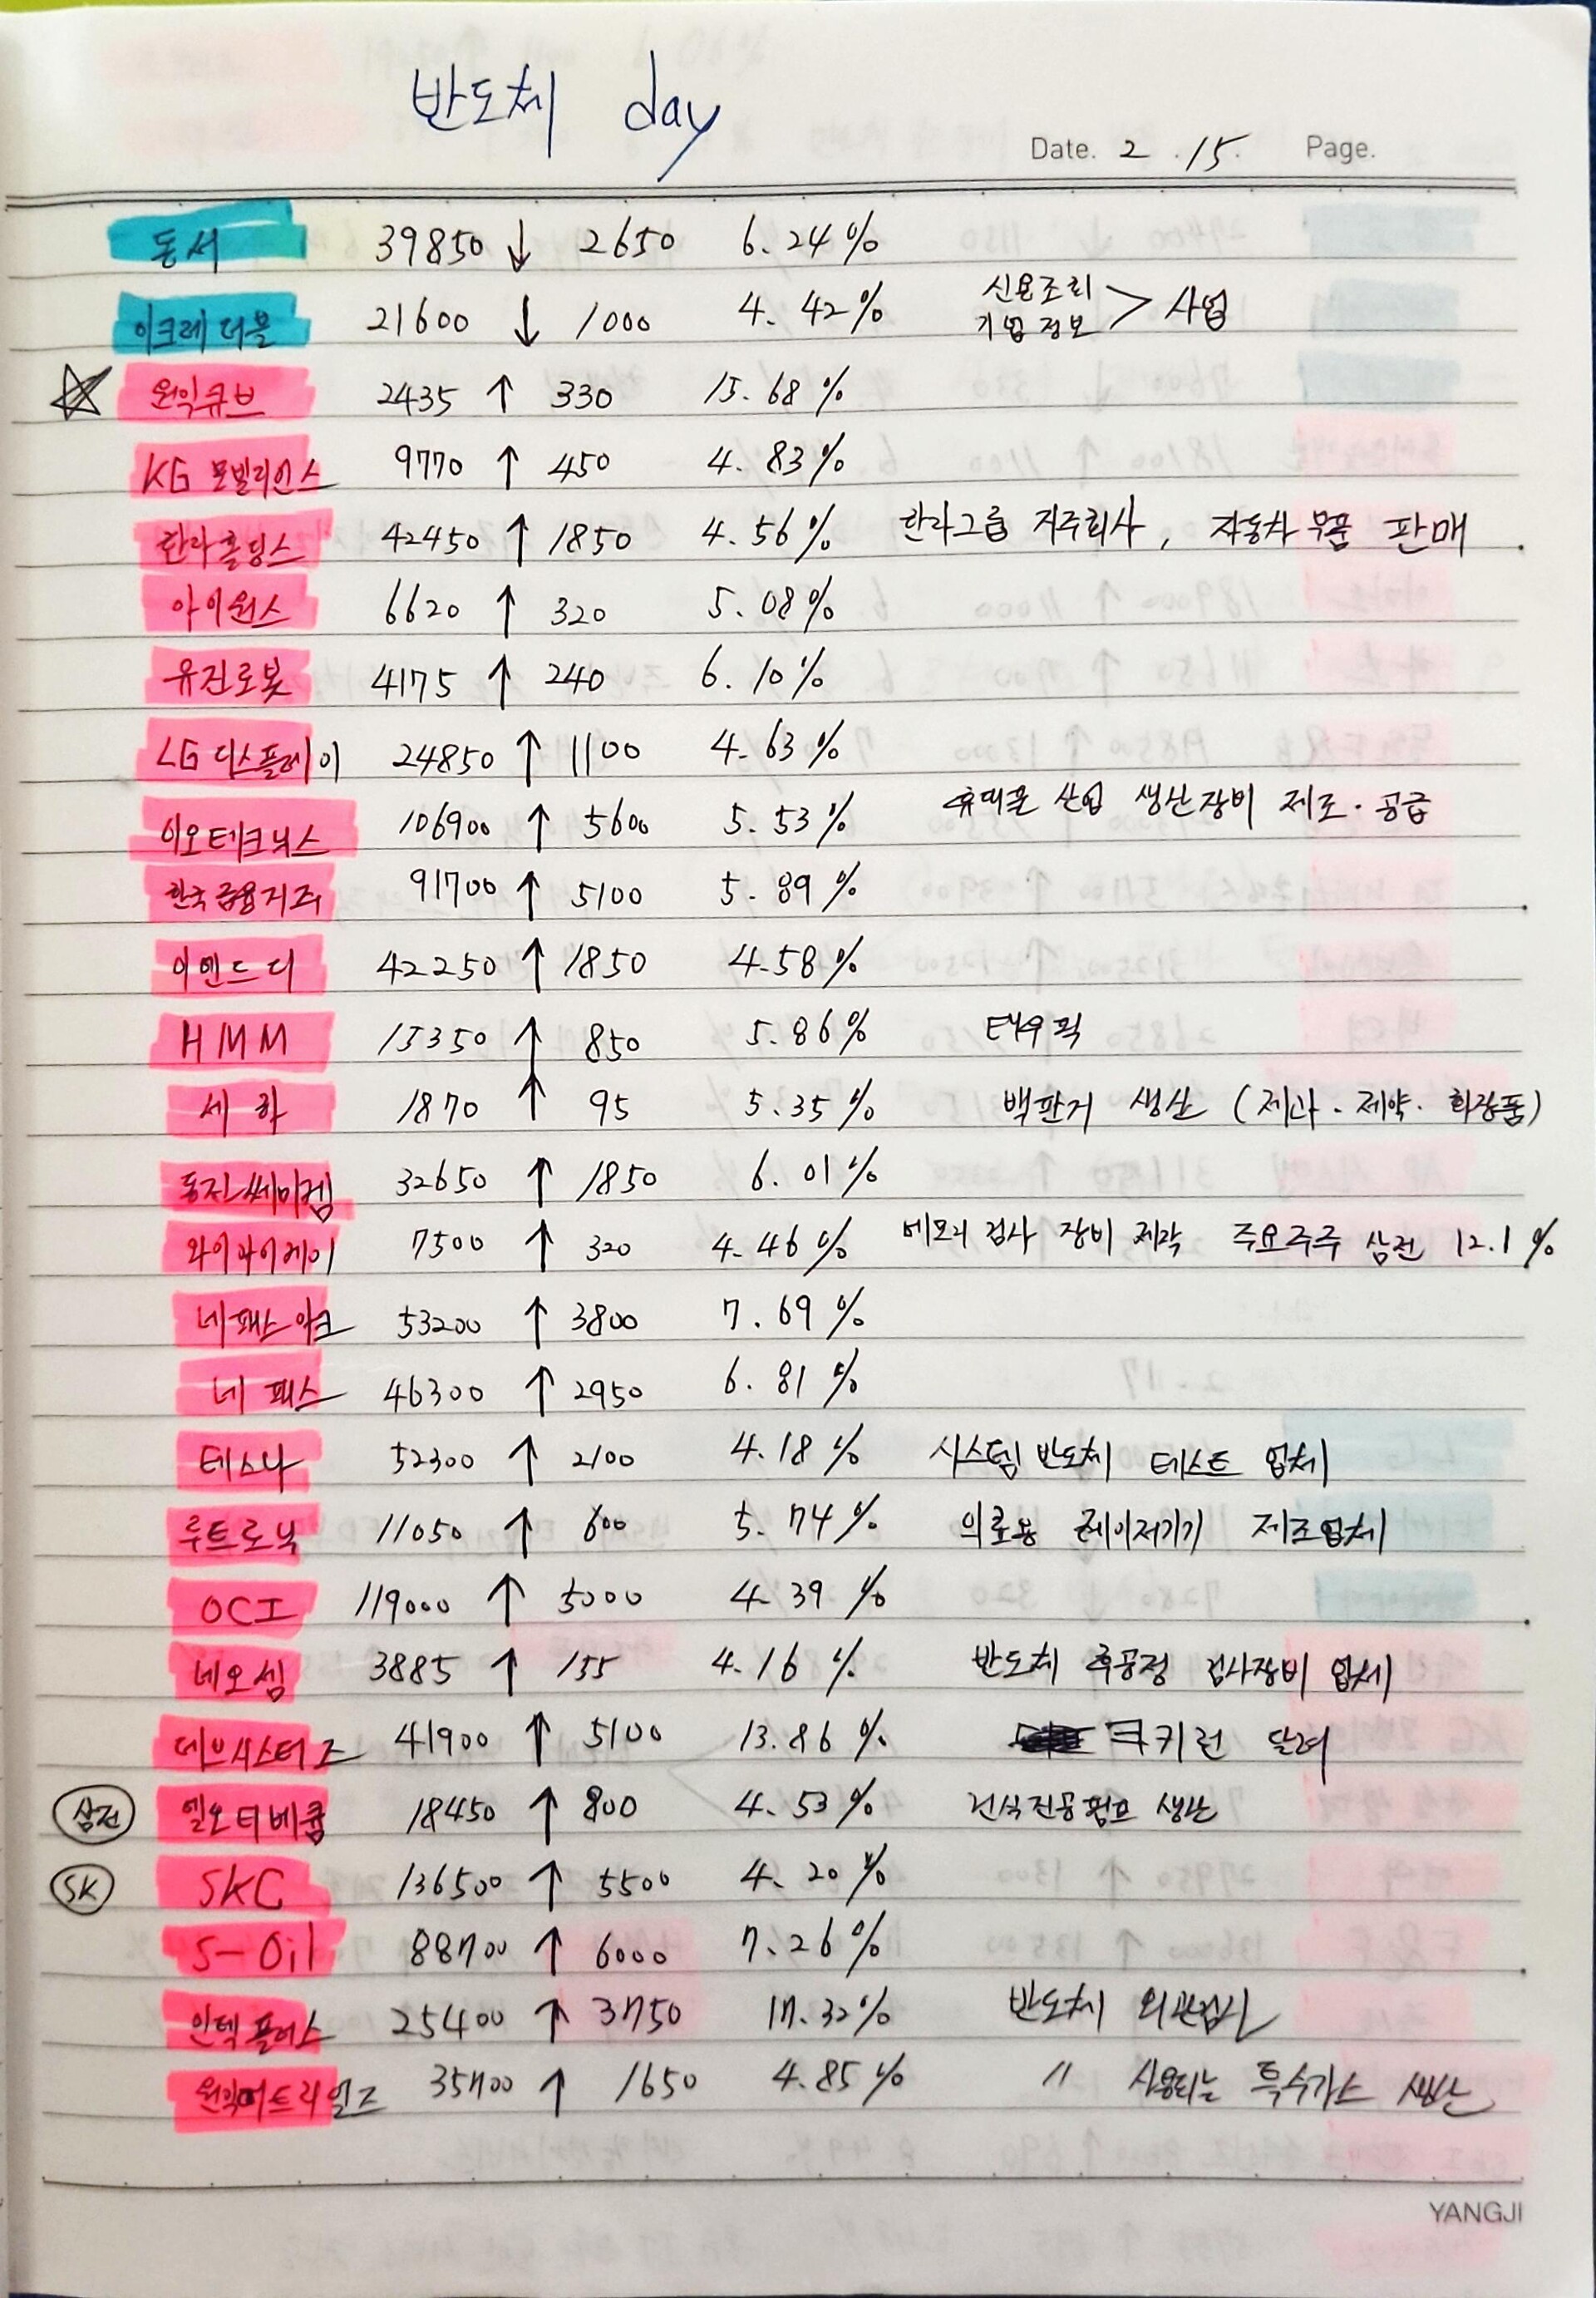 반도체 day
Date. 2 . 15. Page.
동서 39850 ↓ 2650 6.24%
이크레더블 21600 ↓ 1000 4.42% 신용조회 기업정보 > 사업
☆ 원익큐브 2435 ↑ 330 15.68%
KG 모빌리언스 9770 ↑ 450 4.83%
한라홀딩스 42450 ↑ 1850 4.56% 한라그룹 지주회사, 자동차 부품 판매
아이원스 6620 ↑ 320 5.08%
유진로봇 4175 ↑ 240 6.10%
LG 디스플레이 24850 ↑ 1100 4.63%
이오테크닉스 106900 ↑ 5600 5.53% 휴대폰 산업 생산장비 제조·공급
한국금융지주 91700 ↑ 5100 5.89%
이엔드디 42250 ↑ 1850 4.58%
HMM 15350 ↑ 850 5.86%
세하 1870 ↑ 95 5.35% 백판지 생산 (제과·제약·화장품)
동진쎄미켐 32650 ↑ 1850 6.01%
와이아이케이 7500 ↑ 320 4.46% 메모리 검사 장비 제작 주요주주 삼전 12.1%
네패스아크 53200 ↑ 3800 7.69%
네패스 46300 ↑ 2950 6.81%
테스나 52300 ↑ 2100 4.18% 시스템 반도체 테스트 업체
루트로닉 11050 ↑ 600 5.74% 의료용 레이저기기 제조업체
OCI 119000 ↑ 5000 4.39%
네오셈 3885 ↑ 155 4.16% 반도체 후공정 검사장비 업체
데브시스터즈 41900 ↑ 5100 13.86% 쿠키런 달려
삼전 엘오티베큠 18450 ↑ 800 4.53% 건식진공펌프 생산
SK SKC 136500 ↑ 5500 4.20%
S-Oil 88700 ↑ 6000 7.26%
인텍플러스 25400 ↑ 3750 17.32% 반도체 외관검사
원익머트리얼즈 35700 ↑ 1650 4.85% 〃 사용되는 특수가스 생산
YANGJI